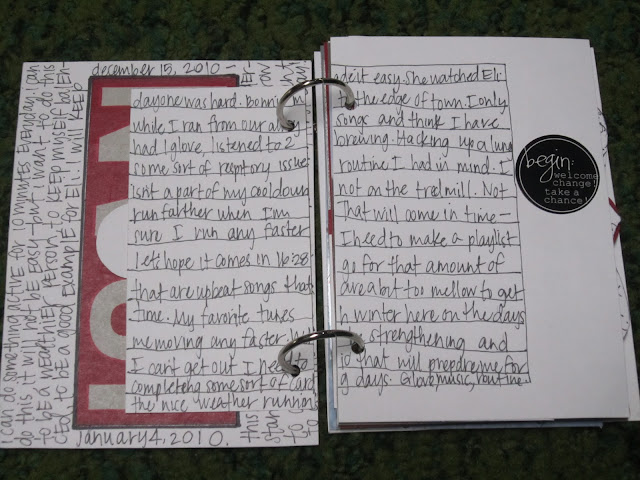 december 15, 2010 -
I can do something active for 10 minutes everyday. I can
do this it will not be easy - but i want to do this
to be a healthier person to keep myself balen-
ced, to be a good example for Eli. I will keep
january 4, 2010.
day one was hard. Bonnie m
while I ran from our alley
had 1 glove, listened to 2
some sort of respitory issue
isnt a part of my cooldown
run farther when I'm
sure I run any faster
Lets hope it comes in 16:28
that are upbeat songs that
time. My favorite tunes
me moving any faster.
I can't get out I need to
completeng some sort of card
the nice weather running
de it easy. She watched Eli
to the edge of town. I only
songs and think I have
brewing. Hacking up a lung
routine I had in mind. I
not on the tredmill. Not
That will come in time -
I need to make a playlist
go for that amount of
are a bit too mellow to get
h winter here on the days
strengthening and
io that will prepare me for
g days. Glove, music, routine.
begin:
welcome
change!
take a
chance!